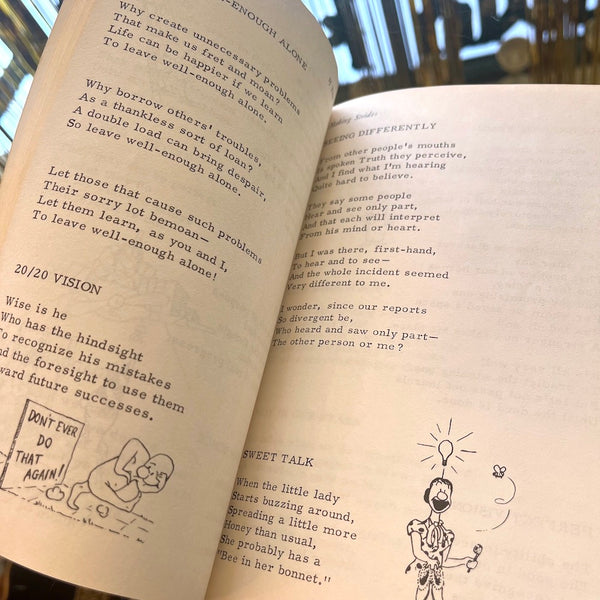 -ENOUGH ALONE
Why create unnecessary problems
That make us fret and moan?
Life can be happier if we learn
To leave well-enough alone.
Why borrow others' troubles,
As a thankless sort of loan?
A double load can bring despair,
So leave well-enough alone.
Let those that cause such problems
Their sorry lot bemoan—
Let them learn, as you and I,
To leave well-enough alone!
20/20 VISION
Wise is he
Who has the hindsight
To recognize his mistakes
nd the foresight to use them
ward future successes.
DON'T EVER
DO
THAT
AGAIN!
SEEING DIFFERENTLY
From other people's mouths
spoken Truth they perceive,
And I find what I'm hearing
Quite hard to believe.
They say some people
Hear and see only part,
And that each will interpret
From his mind or heart.
But I was there, first-hand,
To hear and to see—
And the whole incident seemed
Very different to me.
I wonder, since our reports
So divergent be,
Who heard and saw only part—
The other person or me?
SWEET TALK
When the little lady
Starts buzzing around,
Spreading a little more
Honey than usual,
She probably has a
"Bee in her bonnet."